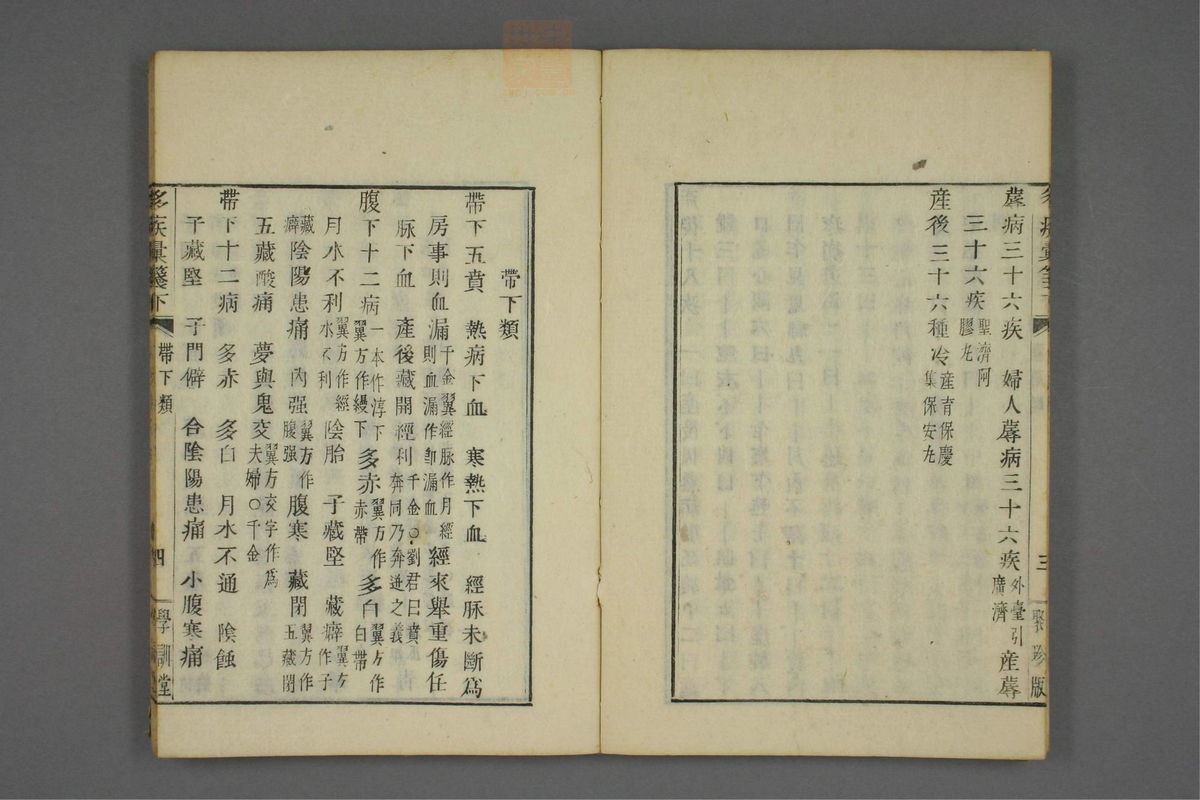 蓐病三十六疾　婦人蓐病三十六疾外臺引廣濟　産蓐
三十六疾聖濟阿膠丸
産後三十六種冷産育保慶集保安丸
三
聚珍版
帶下類
帶下五賁　熱病下血　寒熱下血　經脉未斷爲
房事則血漏千金翼經脉作月經則血漏作卽漏血　經來舉重傷任
脉下血　産後藏開經利千金○劉君曰賁奔同乃奔迸之義
腹下十二病一本作淳下翼方作縵下　多赤翼方作赤帶　多白翼方作白帶
月水不利翼方作經水不利　陰胎　子藏堅　藏癖翼方作子藏癖
陰陽患痛　内强翼方作腹强　腹寒　藏閉翼方作五藏閉
五藏酸痛　夢與鬼交翼方交字作爲夫婦○千金
帶下十二病　多赤　多白　月水不通　陰蝕
子藏堅　子門僻　合陰陽患痛　小腹寒痛
疾彙箋下
帶下類
四
學訓堂